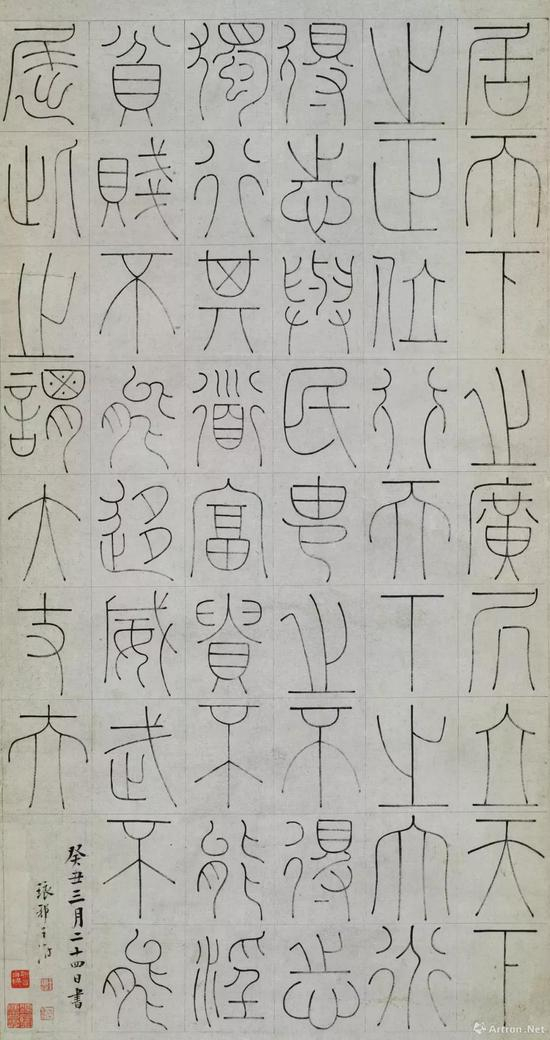 居天下之廣凥立天下
之正位行天下之大道
得志與民由之不得志
獨行其道富貴不能淫
貧賤不能移威武不能
屈此之謂大丈夫
癸丑三月二十四日書
琅邪王
Artron.Net